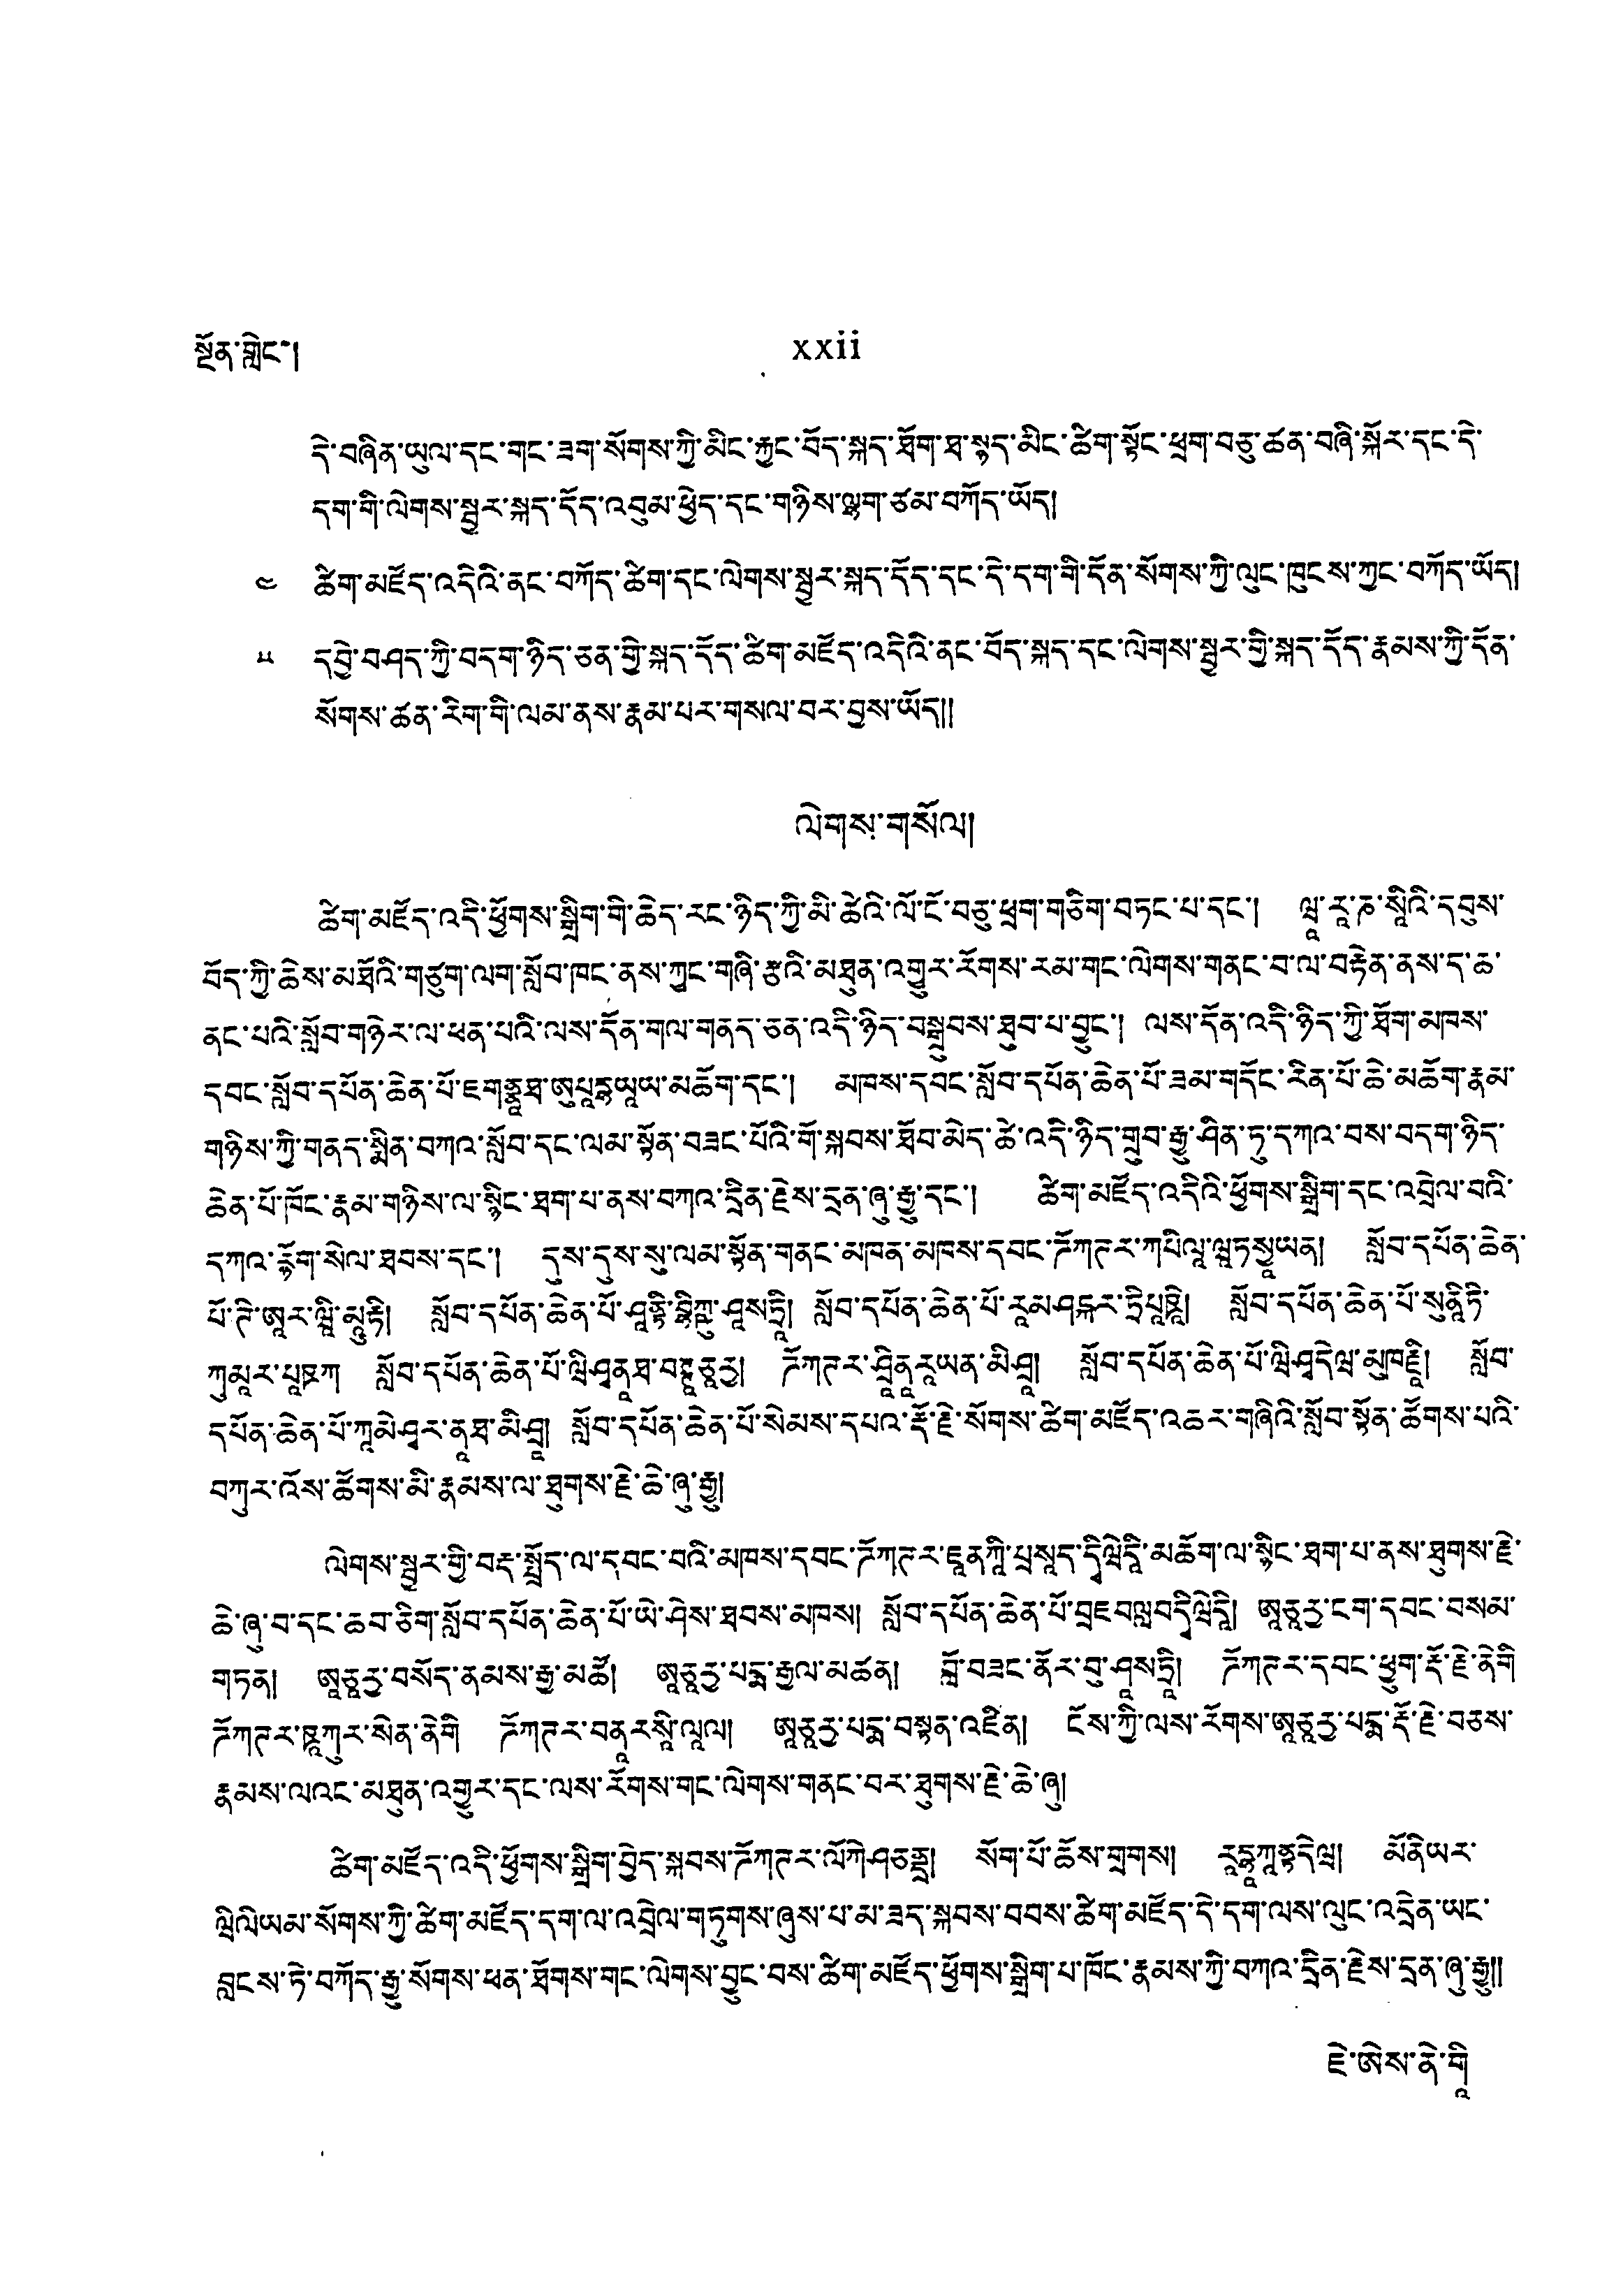 སྔོན་གླེང་།
xxii
དེ་བཞིན་ཡུལ་དང་གང་ཟག་སོགས་ཀྱི་མིང་རྐྱང་བོད་སྐད་ཐོག་ཐ་སྙད་མིང་ཚིག་སྟོང་ཕྲག་བཅུ་ཚན་བཞི་སྐོར་དང་དེ་
དག་གི་ལེགས་སྦྱར་སྐད་དོད་འབུམ་ཕྱེད་དང་གཉིས་ལྷག་ཙམ་བཀོད་ཡོད།
༤ ཚིག་མཛོད་འདིའི་ནང་བཀོད་ཚིག་དང་ལེགས་སྦྱར་སྐད་དོད་དང་དེ་དག་གི་དོན་སོགས་ཀྱི་ལུང་ཁུངས་ཀྱང་བཀོད་ཡོད།
༥ དབྱེ་བཤད་ཀྱི་བདག་ཉིད་ཅན་གྱི་སྐད་དོད་ཚིག་མཛོད་འདིའི་ནང་བོད་སྐད་དང་ལེགས་སྦྱར་གྱི་སྐད་དོད་རྣམས་ཀྱི་དོན་
སོགས་ཚན་རིག་གི་ལམ་ནས་རྣམ་པར་གསལ་བར་བྱས་ཡོད།།
ལེགས་གསོལ།
ཚིག་མཛོད་འདི་ཕྱོགས་སྒྲིག་གི་ཆེད་རང་ཉིད་ཀྱི་མི་ཚེའི་ལོ་ངོ་བཅུ་ཕྲག་གཅིག་བཏང་པ་དང་། ཝཱ་རཱ་ཎ་སཱིའི་དབུས་
བོད་ཀྱི་ཆེས་མཐོའི་གཙུག་ལག་སློབ་ཁང་ནས་ཀྱང་གཞི་རྩའི་མཐུན་འགྱུར་རོགས་རམ་གང་ལེགས་གནང་བ་ལ་བརྟེན་ནས་ད་ཆ་
ནང་པའི་སློབ་གཉེར་ལ་ཕན་པའི་ལས་དོན་གལ་གནད་ཅན་འདི་ཉིད་བསྒྲུབས་ཐུབ་པ་བྱུང་། ལས་དོན་འདི་ཉིད་ཀྱི་ཐོག་མཁས་
དབང་སློབ་དཔོན་ཆེན་པོ་ཇགནྣཱཐ་ཨུཔཱདྷྱཱཡ་མཆོག་དང་། མཁས་དབང་སློབ་དཔོན་ཆེན་པོ་ཟམ་གདོང་རིན་པོ་ཆེ་མཆོག་རྣམ་
གཉིས་ཀྱི་གནད་སྨིན་བཀའ་སློབ་དང་ལམ་སྟོན་བཟང་པོའི་གོ་སྐབས་ཐོབ་མེད་ཚེ་འདི་ཉིད་གྲུབ་རྒྱུ་ཤིན་ཏུ་དཀའ་བས་བདག་ཉིད་
ཆེན་པོ་ཁོང་རྣམ་གཉིས་ལ་སྙིང་ཐག་པ་ནས་བཀའ་དྲིན་རྗེས་དྲན་ཞུ་རྒྱུ་དང་། ཚིག་མཛོད་འདིའི་ཕྱོགས་སྒྲིག་དང་འབྲེལ་བའི་
དཀའ་རྙོག་སེལ་ཐབས་དང་། དུས་དུས་སུ་ལམ་སྟོན་གནང་མཁན་མཁས་དབང་ཌོཀཊར་ཀཔིལཱ་ཝཱཏསྱཱཡན། སློབ་དཔོན་ཆེན་
པོ་ཊི་ཨཱར་ཝཱི་མཱུརྟི། སློབ་དཔོན་ཆེན་པོ་ཤཱནྟི་བྷིཀྵུ་ཤཱསཏྲཱི། སློབ་དཔོན་ཆེན་པོ་རཱམཤངྐར་ཏྲིཔཱཋཱི། སློབ་དཔོན་ཆེན་པོ་སུནཱིཏི་
ཀུམཱར་པཱཋཀ སློབ་དཔོན་ཆེན་པོ་ཝིཤྭནཱཐ་བཊྚཱཙཱརྱ། ཌོཀཊར་ཤྲཱིནཱརཱཡན་མིཤྲ། སློབ་དཔོན་ཆེན་པོ་ཝིཤྭདེཝ་མུཁརྫཱི། སློབ་
དཔོན་ཆེན་པོ་ཀཱམེཤྭར་ནཱཐ་མིཤྲ། སློབ་དཔོན་ཆེན་པོ་སེམས་དཔའ་རྡོ་རྗེ་སོགས་ཚིག་མཛོད་འཆར་གཞིའི་སློབ་སྟོན་ཚོགས་པའི་
བཀུར་འོས་ཚོགས་མི་རྣམས་ལ་ཐུགས་རྗེ་ཆེ་ཞུ་རྒྱུ།
ལེགས་སྦྱར་གྱི་བརྡ་སྤྲོད་ལ་དབང་བའི་མཁས་དབང་ཌོཀཊར་ཇཱནཀཱི་པྲསཱད་དྭིཝེདཱི་མཆོག་ལ་སྙིང་ཐག་པ་ནས་ཐུགས་རྗེ་
ཆེ་ཞུ་བ་དང་ཆབ་ཅིག་སློབ་དཔོན་ཆེན་པོ་ཡེ་ཤེས་ཐབས་མཁས། སློབ་དཔོན་ཆེན་པོ་བྲཇབལླབདྭིཝེདཱི། ཨཱཙཱརྱ་ངག་དབང་བསམ་
གཏན། ཨཱཙཱརྱ་བསོད་ནམས་རྒྱ་མཚོ། ཨཱཙཱརྱ་པདྨ་རྒྱལ་མཚན། བློ་བཟང་ནོར་བུ་ཤཱསཏྲཱི། ཌོཀཊར་དབང་ཕྱུག་རྡོ་རྗེ་ནེགི
ཌོཀཊར་ཋཱཀུར་སེན་ནེགི ཌོཀཊར་བནཱརསཱི་ལཱལ། ཨཱཙཱརྱ་པདྨ་བསྟན་འཛིན། ངོས་ཀྱི་ལས་རོགས་ཨཱཙཱརྱ་པདྨ་རྡོ་རྗེ་བཅས་
རྣམས་ལའང་མཐུན་འགྱུར་དང་ལས་རོགས་གང་ལེགས་གནང་བར་ཐུགས་རྗེ་ཆེ་ཞུ།
ཚིག་མཛོད་འདི་ཕྱོགས་སྒྲིག་བྱེད་སྐབས་ཌོཀཊར་ལོཀེཤཅནྡྲ། སོག་པོ་ཆོས་གྲགས། རཱདྷཱཀཱནྟདེཝ། མོནིཡར་
ཝིལིཡམ་སོགས་ཀྱི་ཚིག་མཛོད་དག་ལ་འབྲེལ་གཏུགས་ཞུས་པ་མ་ཟད་སྐབས་བབས་ཚིག་མཛོད་དེ་དག་ལས་ལུང་འདྲེན་ཡང་
བླངས་ཏེ་བཀོད་རྒྱུ་སོགས་ཕན་ཐོགས་གང་ལེགས་བྱུང་བས་ཚིག་མཛོད་ཕྱོགས་སྒྲིག་པ་ཁོང་རྣམས་ཀྱི་བཀའ་དྲིན་རྗེས་དྲན་ཞུ་རྒྱུ།།
ཇེ་ཨེས་ནེ་གཱི